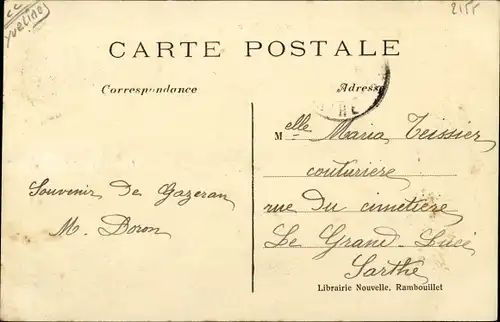 Yvelines
2155
CARTE POSTALE
Correspondance
Adresse
Melle Maria Teissier
couturiere
rue du cimetière
Le Grand-Lucé
Sarthe
Souvenir de Gazeran
M. Doron
Librairie Nouvelle, Rambouillet